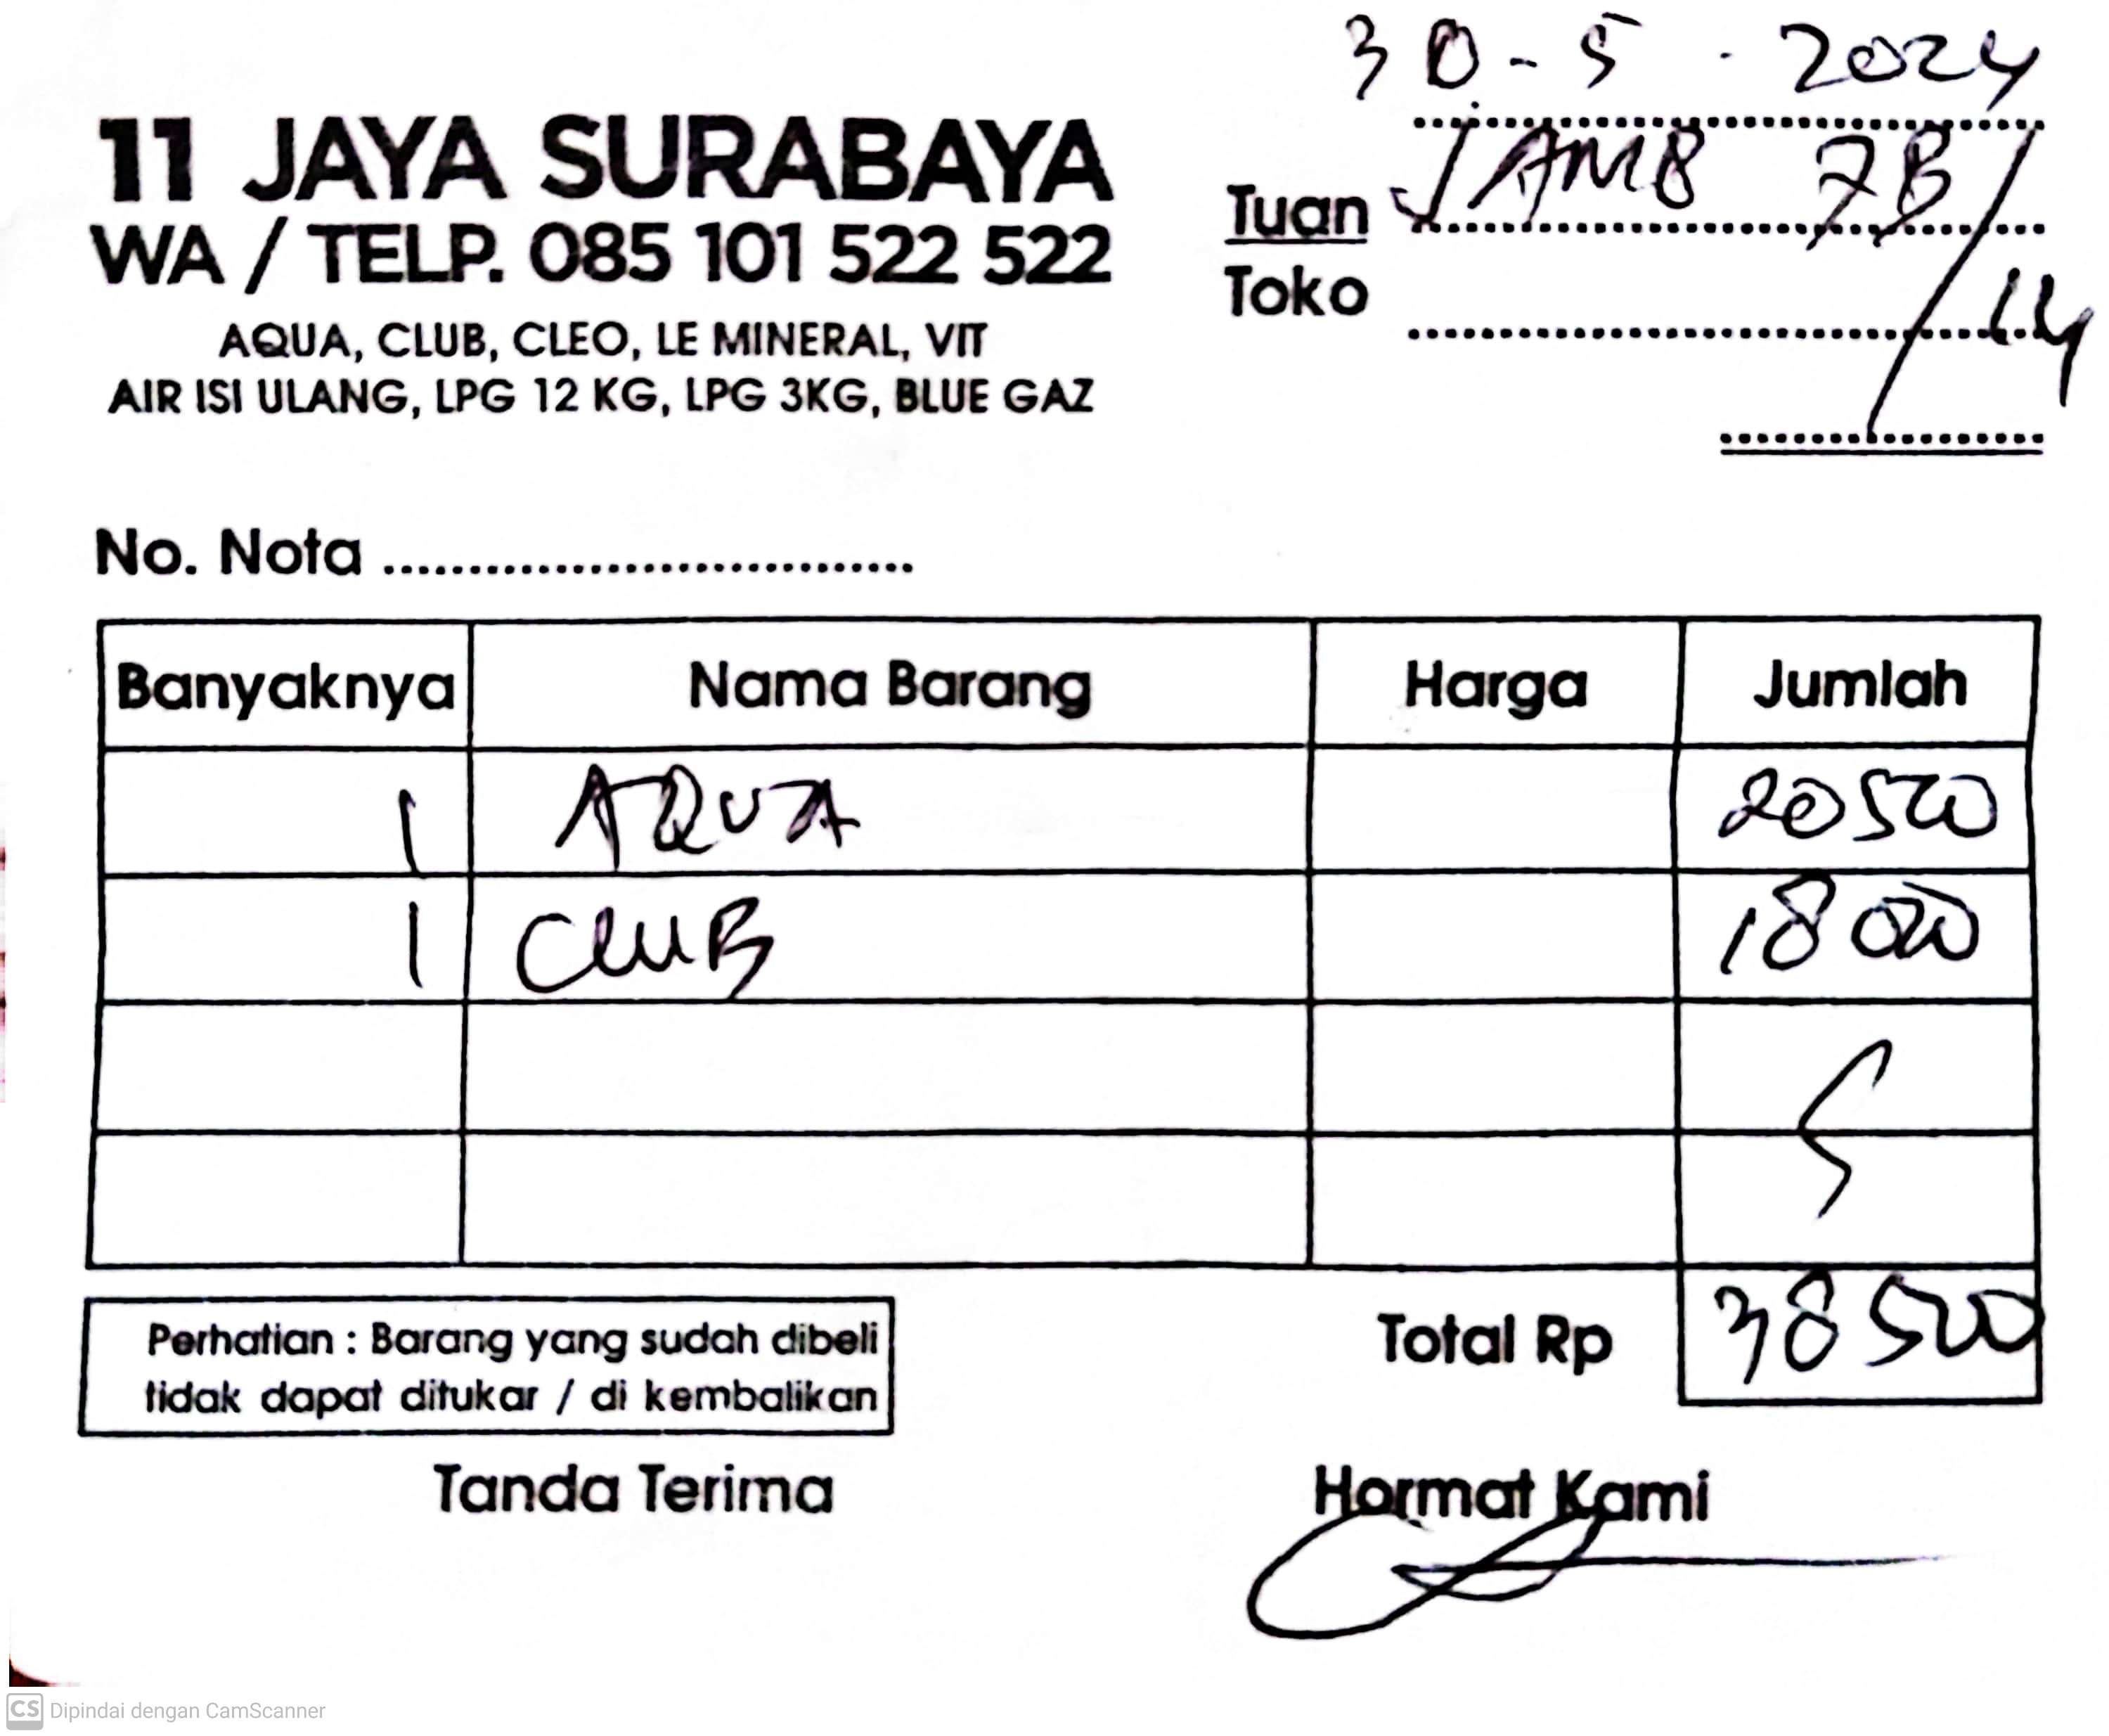 30-5-2024
11 JAYA SURABAYA
WA / TELP. 085 101 522 522
AQUA, CLUB, CLEO, LE MINERAL, VIT
AIR ISI ULANG, LPG 12 KG, LPG 3KG, BLUE GAZ
Tuan JAMB 7B/14
Toko
No. Nota
Banyaknya Nama Barang Harga Jumlah
1 AQUA 20500
1 CLUB 18000
Total Rp 38500
Perhatian : Barang yang sudah dibeli
tidak dapat ditukar / di kembalikan
Tanda Terima Hormat Kami
CS Dipindai dengan CamScanner